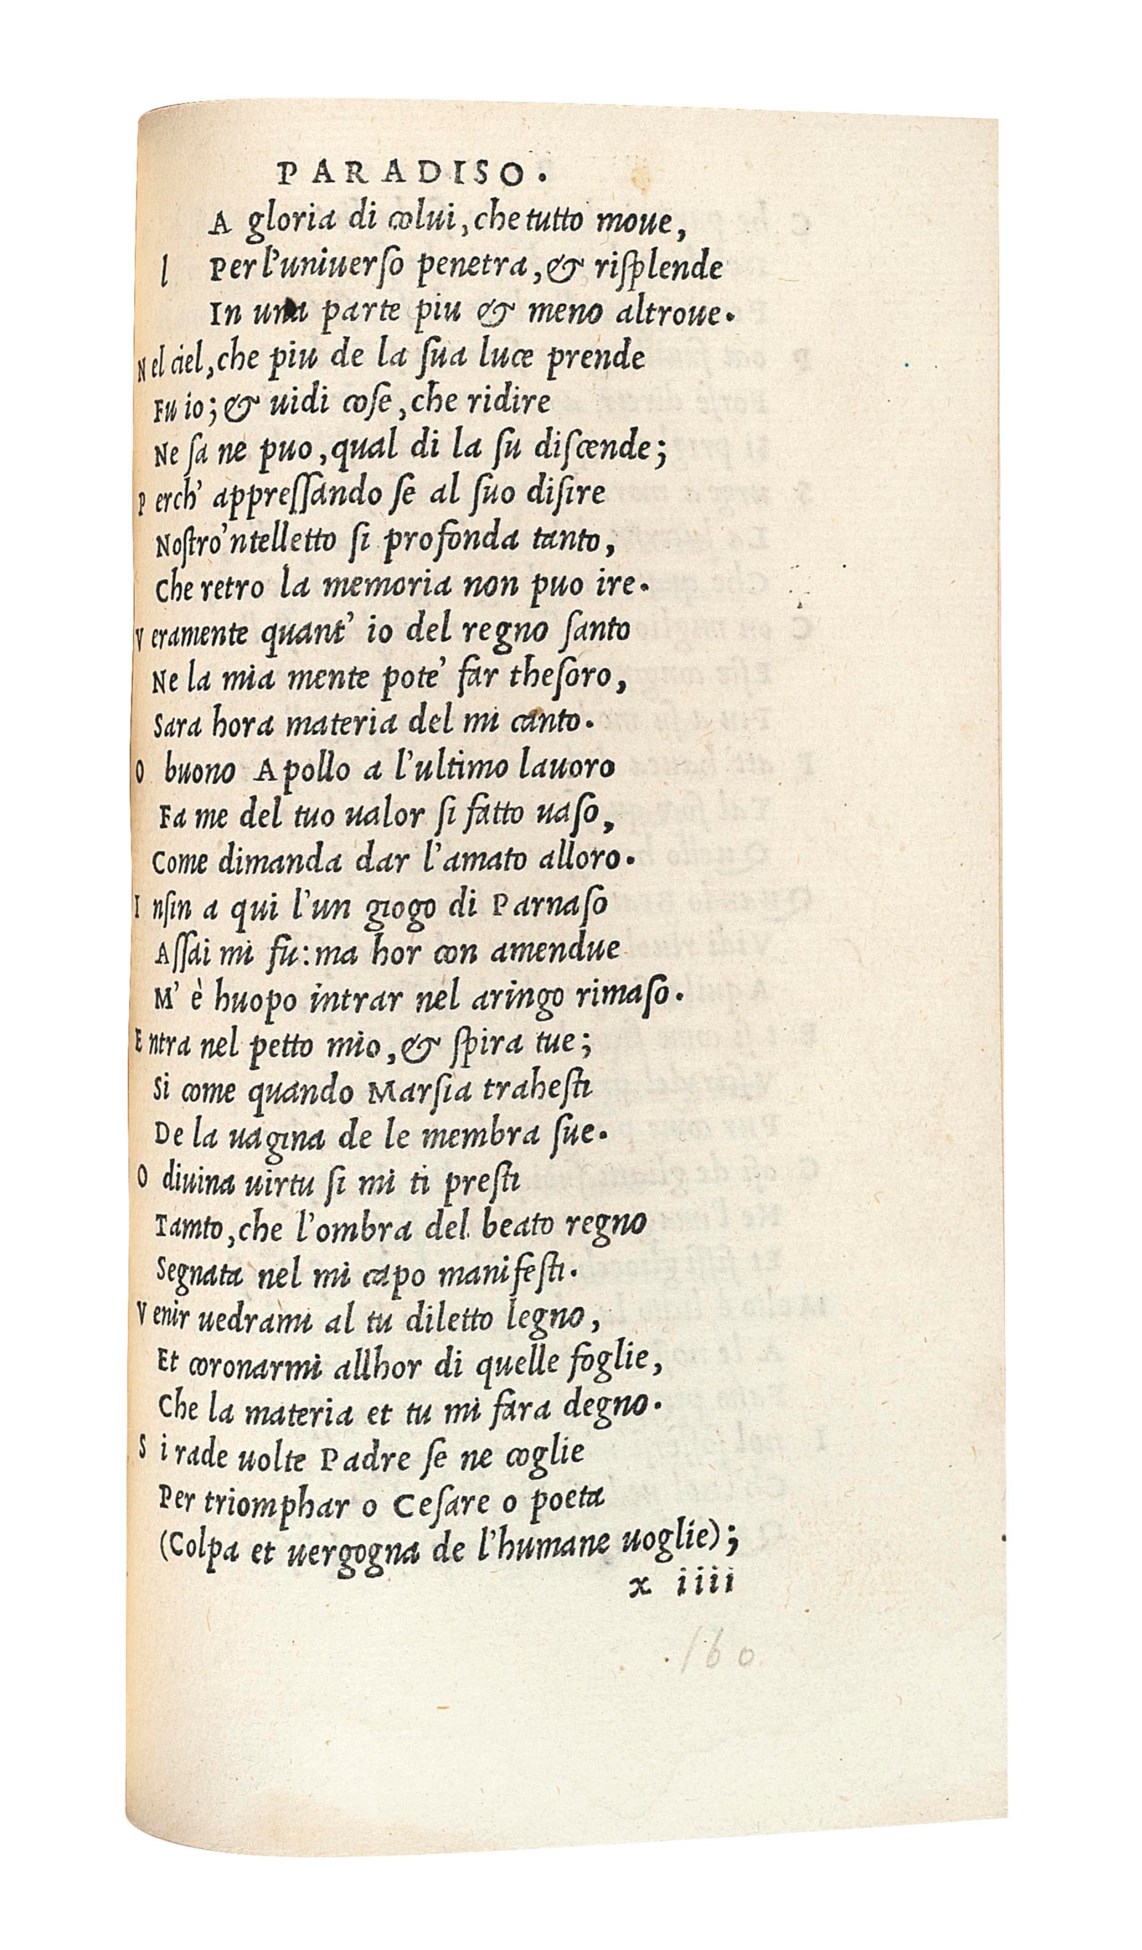 PARADISO.
l A gloria di colui, che tutto moue,
Per l'uniuerso penetra, & risplende
In una parte piu & meno altroue.
Nel ciel, che piu de la sua luce prende
Fu io; & uidi cose, che ridire
Ne sa ne puo, qual di la su discende;
Perch' appressando se al suo disire
Nostro 'ntelletto si profonda tanto,
Che retro la memoria non puo ire.
Veramente quant' io del regno santo
Ne la mia mente pote' far thesoro,
Sara hora materia del mi canto.
O buono Apollo a l'ultimo lauoro
Fa me del tuo ualor si fatto uaso,
Come dimanda dar l'amato alloro.
Insin a qui l'un giogo di Parnaso
Assai mi fu: ma hor con amendue
M' è huopo intrar nel aringo rimaso.
Entra nel petto mio, & spira tue;
Si come quando Marsia trahesti
De la uagina de le membra sue.
O diuina uirtu si mi ti presti
Tamto, che l'ombra del beato regno
Segnata nel mi capo manifesti.
Venir uedrami al tu diletto legno,
Et coronarmi allhor di quelle foglie,
Che la materia et tu mi fara degno.
Si rade uolte Padre se ne coglie
Per triomphar o Cesare o poeta
(Colpa et uergogna de l'humane uoglie);
x iiii
160